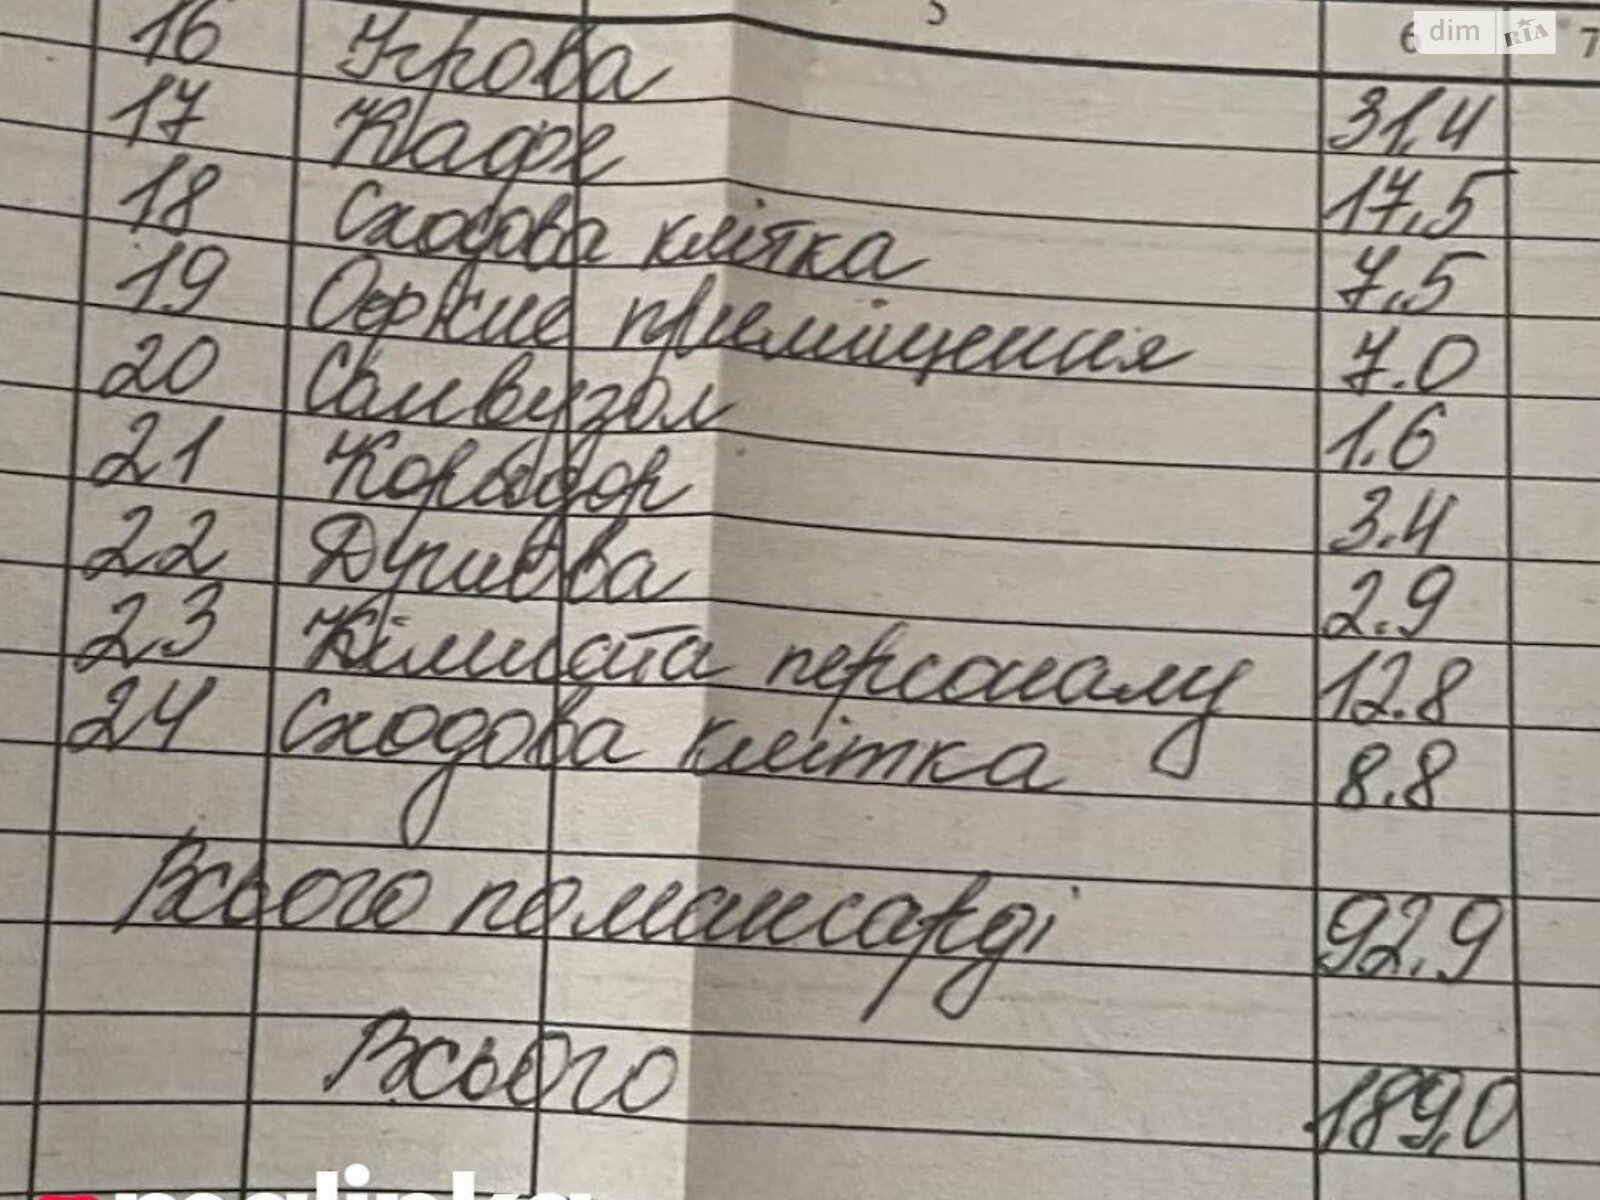 5 6 7
dim RIA
16 Ігрова 31,4
17 Кафе 17,5
18 Сходова клітка 7,5
19 Офісне приміщення 7.0
20 Санвузол 1.6
21 Коридор 3.4
22 Душова 2.9
23 Кімната персоналу 12.8
24 Сходова клітка 8.8
Всього по мансарді 92,9
Всього 189,0
malinka